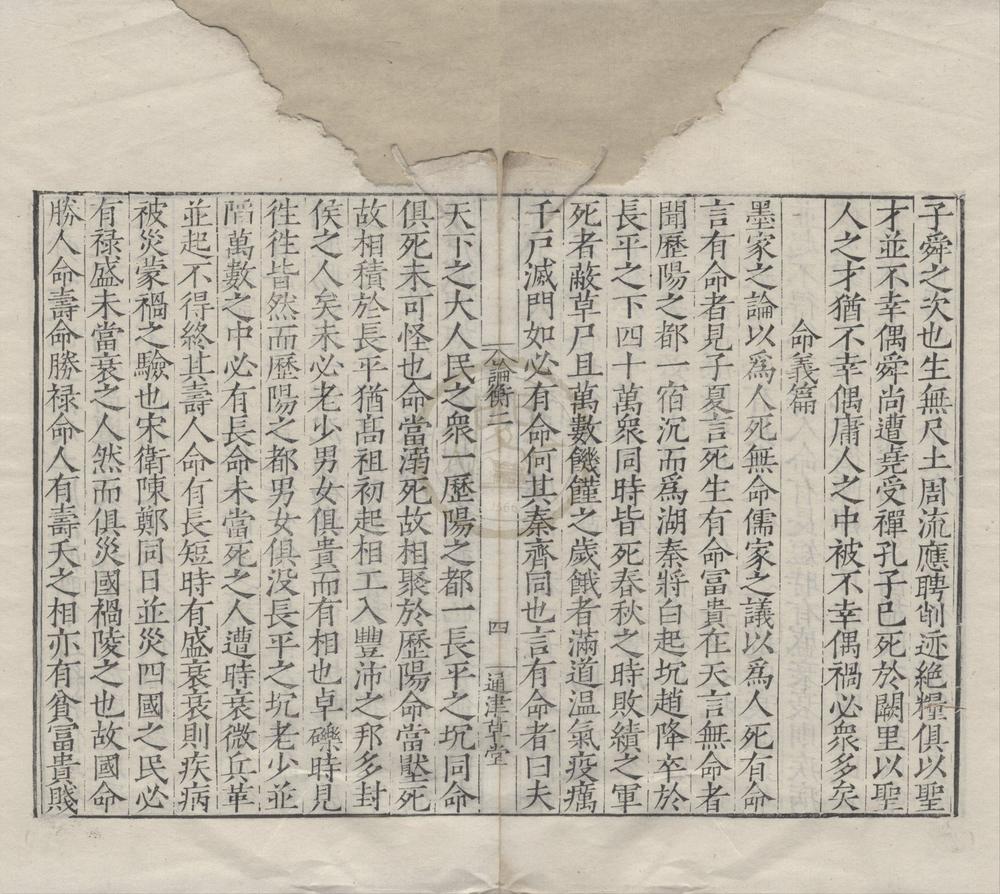 子舜之次也生無尺土周流應聘削迹絶糧俱以聖
才並不幸偶舜尚遭堯受禪孔子已死於闕里以聖
人之才猶不幸偶庸人之中被不幸偶禍必衆多矣
命義篇
墨家之論以爲人死無命儒家之議以爲人死有命
言有命者見子夏言死生有命富貴在天言無命者
聞歷陽之都一宿沉而爲湖秦將白起坑趙降卒於
長平之下四十萬衆同時皆死春秋之時敗績之軍
死者蔽草尸且萬數饑饉之歲餓者滿道温氣疫癘
千戸滅門如必有命何其秦齊同也言有命者曰夫
論衡二
四
通津草堂
天下之大人民之衆一歷陽之都一長平之坑同命
俱死未可怪也命當溺死故相聚於歷陽命當壓死
故相積於長平猶髙祖初起相工入豐沛之邦多封
侯之人矣未必老少男女俱貴而有相也卓礫時見
徃徃皆然而歷陽之都男女俱没長平之坑老少並
陷萬數之中必有長命未當死之人遭時衰微兵革
並起不得終其壽人命有長短時有盛衰衰則疾病
被災蒙禍之驗也宋衛陳鄭同日並災四國之民必
有禄盛未當衰之人然而俱災國禍陵之也故國命
勝人命壽命勝禄命人有壽夭之相亦有貧富貴賤